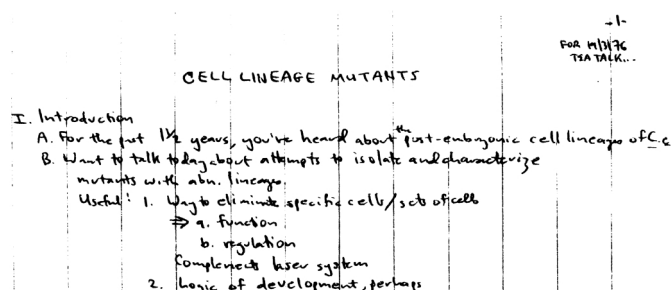 -1-
FOR 14/3/76
TEA TALK...
CELL LINEAGE MUTANTS
I. Introduction
A. For the past 1½ years, you've heard about the post-embryonic cell lineages of C.e
B. Want to talk today about attempts to isolate and characterize
mutants with abn. lineages.
Useful: 1. Way to eliminate specific cells/sets of cells
⇒ a. function
b. regulation
Complements laser system
2. Logic of development, perhaps